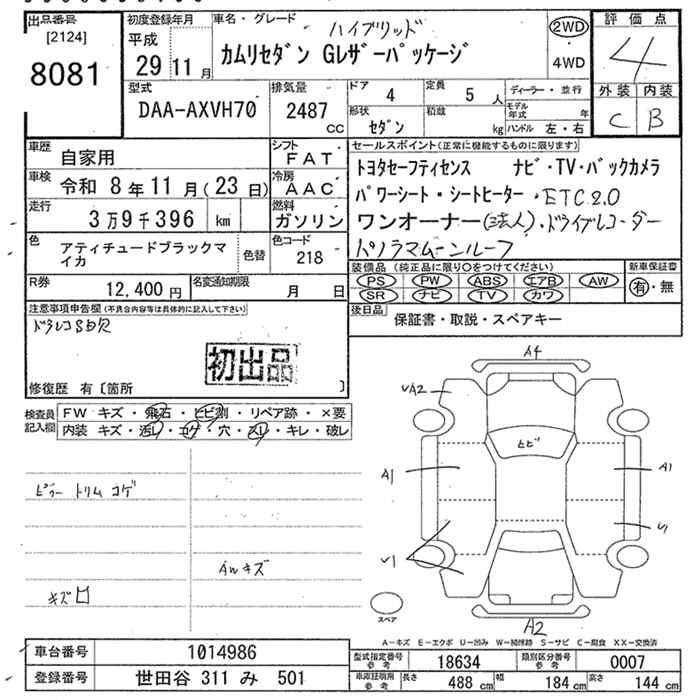 出品番号
[2124]
8081
初度登録年月
平成
29年11月
車名・グレード
ハイブリッド
カムリセダン Gレザーパッケージ
2WD
・
4WD
評価点
4
外装 内装
C B
型式
DAA-AXVH70
排気量
2487 cc
ドア 4
定員 5人
ディーラー・並行
形状 セダン
積載 kg
モデル年式 年
ハンドル 左・右
車歴 自家用
シフト FAT
車検 令和 8年11月(23日)
冷房 AAC
走行 3万9千396 km
燃料 ガソリン
色 アティチュードブラックマイカ
色替
色コード 218
R券 12,400円
名変通知期限 月 日
セールスポイント(正常に機能するものに限ります)
トヨタセーフティセンス ナビ・TV・バックカメラ
パワーシート・シートヒーター・ETC2.0
ワンオーナー(法人)・ドライブレコーダー
パノラマムーンルーフ
装備品 (純正品に限り○をつけてください)
PS PW ABS エアB AW
SR ナビ TV カワ
新車保証書
有・無
後日品 保証書・取説・スペアキー
注意事項申告欄(不具合内容等は具体的に記入して下さい)
ドラレコSD欠
初出品
修復歴 有〔箇所 〕
検査員記入欄
FW キズ・飛石・ヒビ割・リペア跡・×要
内装 キズ・汚レ・コゲ・穴・スレ・キレ・破レ
ピラー トリム コゲ
AWキズ
キズ
A4
UA2
ヒビ
A1
A1
U1
U1
A2
スペア
A-キズ E-エクボ U-凹み W-補修跡 S-サビ C-腐食 XX-交換済
車台番号 1014986
登録番号 世田谷 311 み 501
型式指定番号 参考 18634
類別区分番号 参考 0007
車庫証明用 参考 長さ 488cm 幅 184cm 高さ 144cm